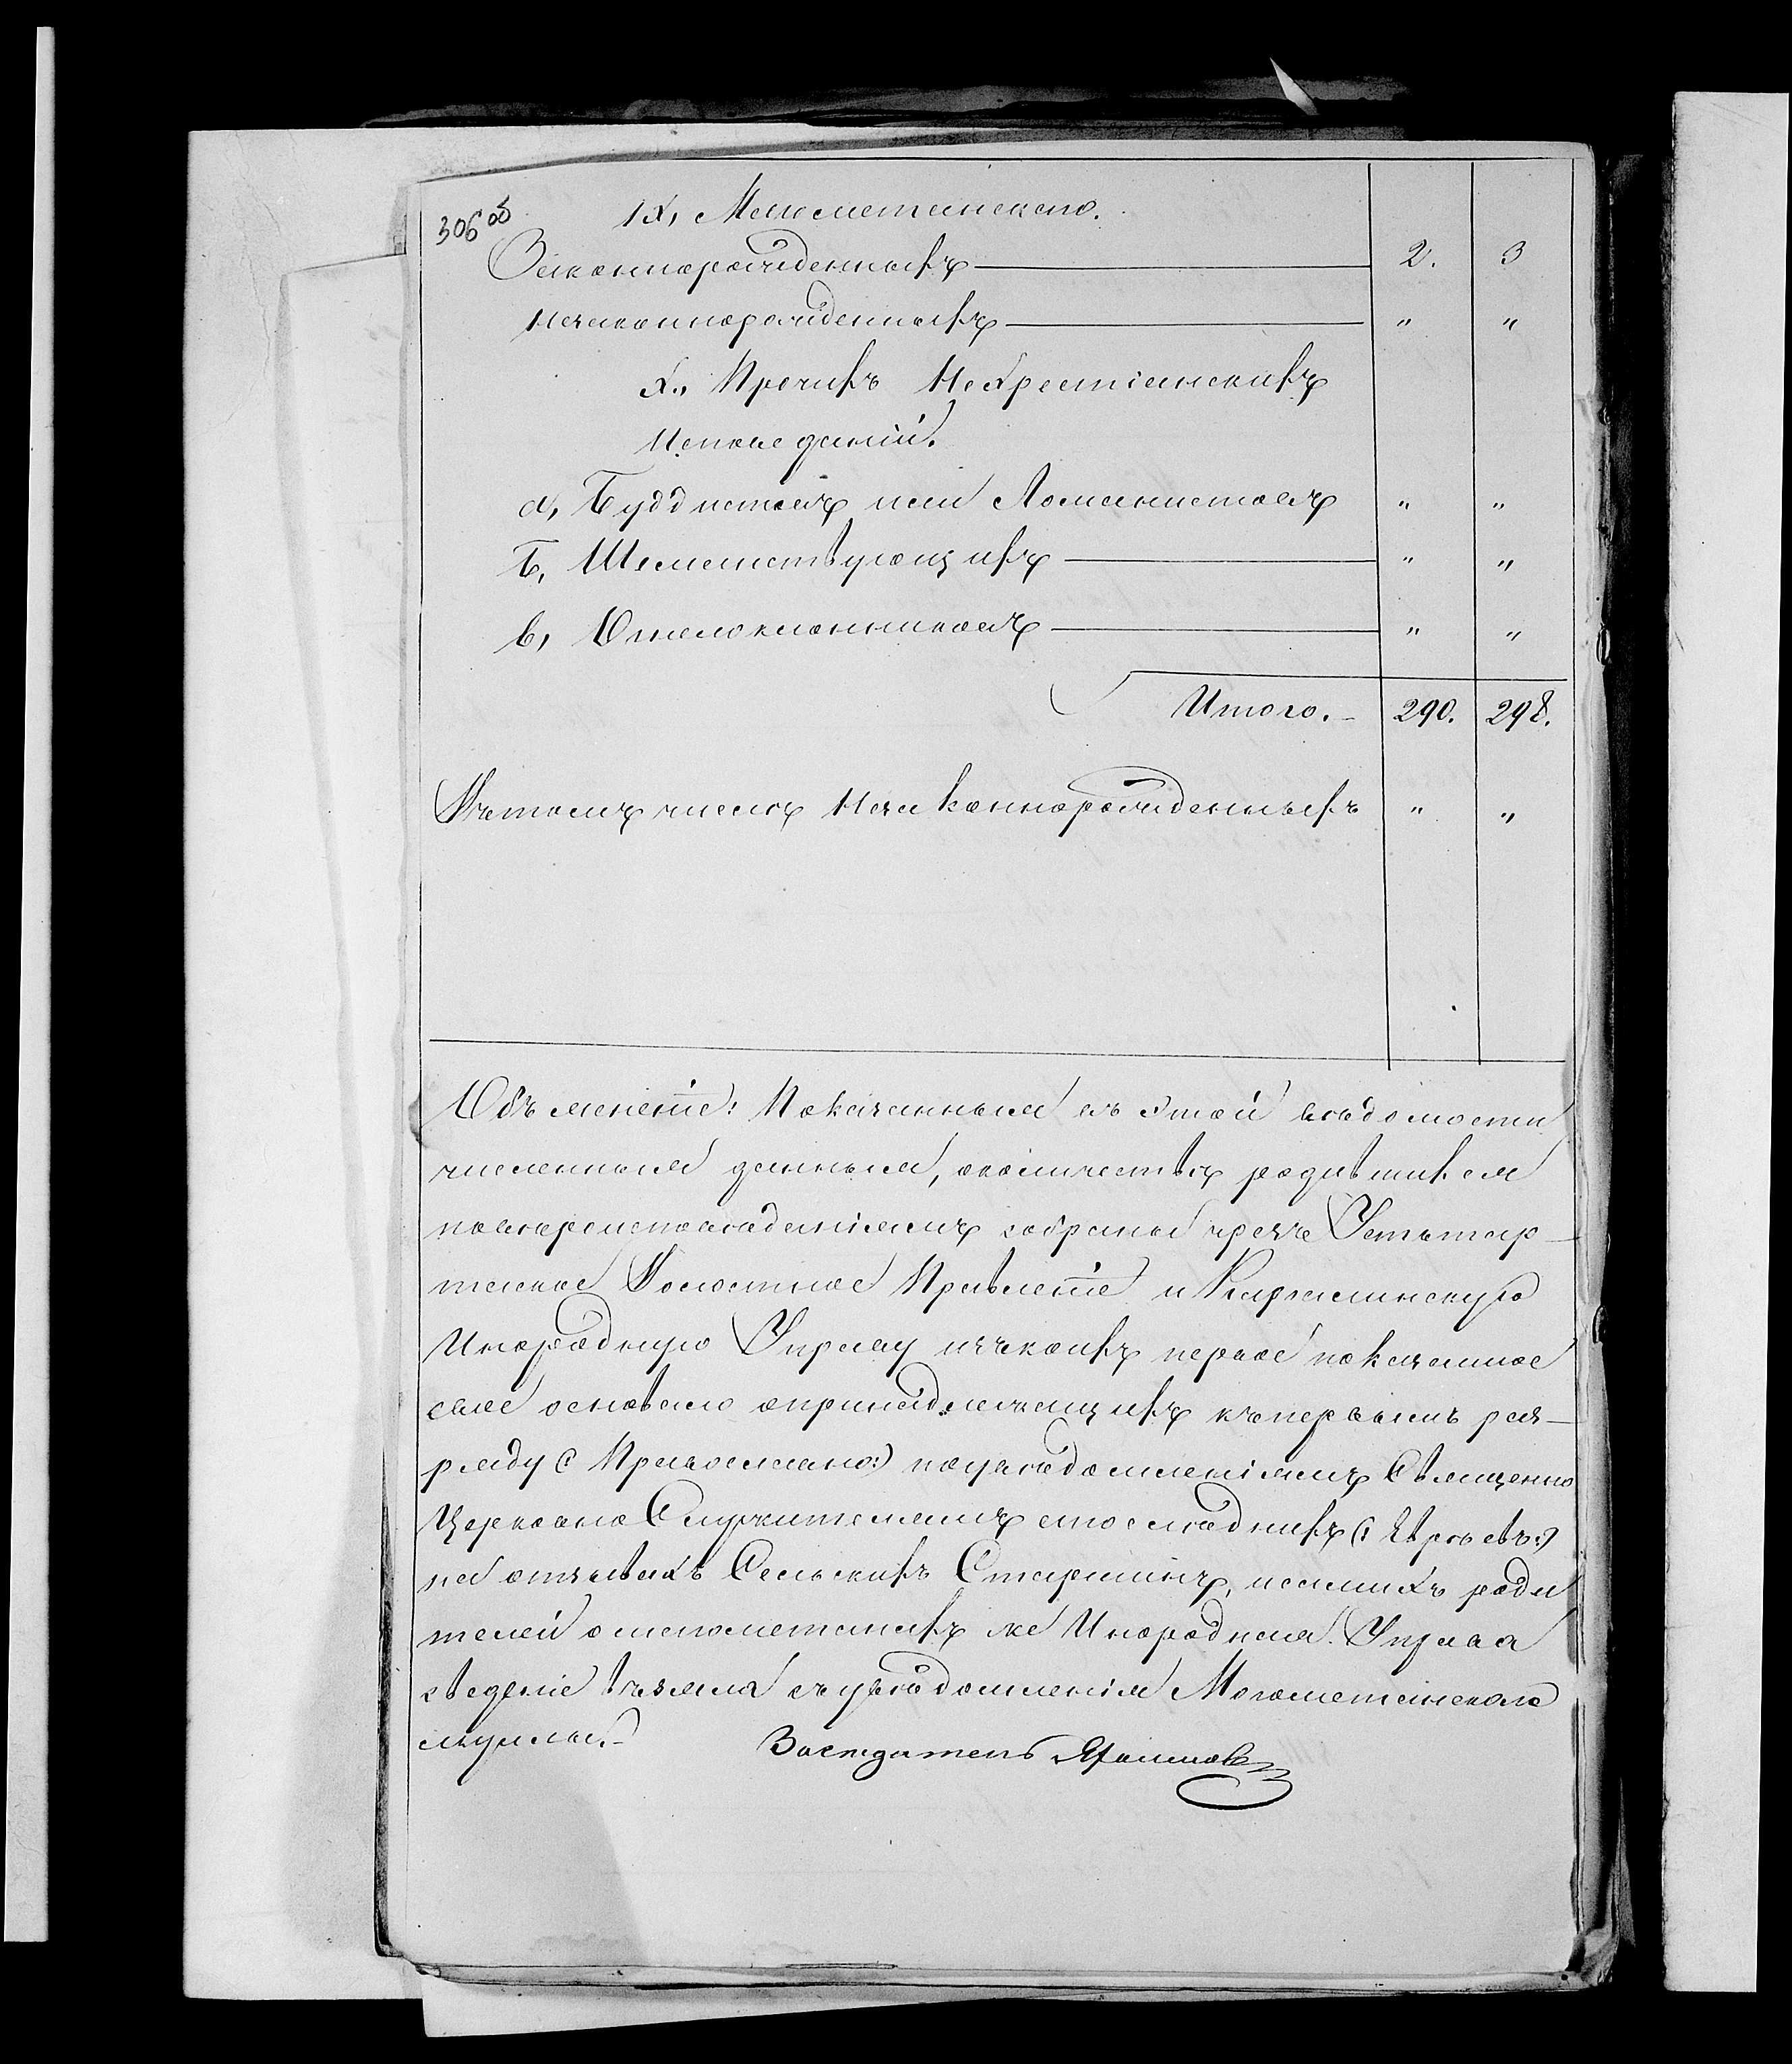 306 об
IX, Магометанскаго.
Законнорожденныхъ 2. 3
Незаконнорожденныхъ " "
X., Прочихъ Нехрестіанскихъ
Исповеданій.
а, Буддистовъ или Ломанистовъ " "
б, Шаманствующихъ " "
в, Отнепоклонниковъ " "
Итого. 290. 298.
Вътомъ числѣ Незаконнорожденныхъ " "
Объясненіе: Показанныя въ этой вѣдомости
численныя данныя, околичествѣ родившихся
повѣроисповѣданіямъ собраны чрезъ Устьтар-
таское Волостное Правленіе и Каргалинскую
Инородную Управу изъкоихъ первое показанное
свое основало опринадлежащихъ къпервымъ раз-
ряду (: Православно:) поувѣдомленіямъ Священно
Церковно Служителямъ опоследнихъ (: Евреевъ:)
на отзывахъ Сельскихъ Старшинъ, исамихъ роди
телей омагометанахъ же Инородная Управа
сведеніе взяла съувѣдомленія Магометанскаго
муллы.
Заседатель